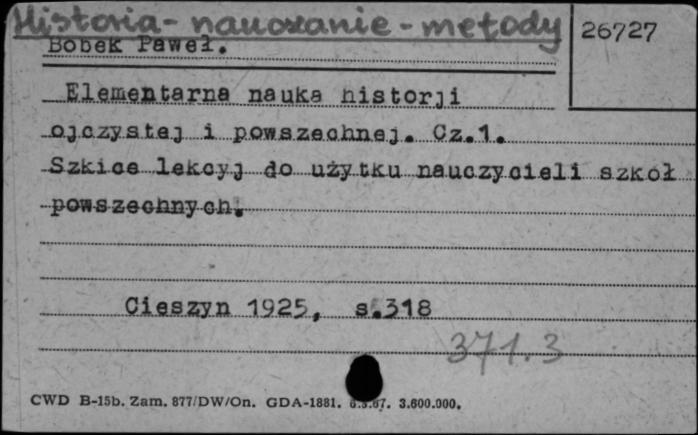 Historia - nauczanie - metody
26727
Bobek Paweł.
Elementarna nauka historji
ojczystej i powszechnej. Cz.1.
Szkice lekcyj do użytku nauczycieli szkół
powszechnych.
Cieszyn 1925, s.318
371.3
CWD B-15b. Zam. 877/DW/On. GDA-1881. 3.600.000.